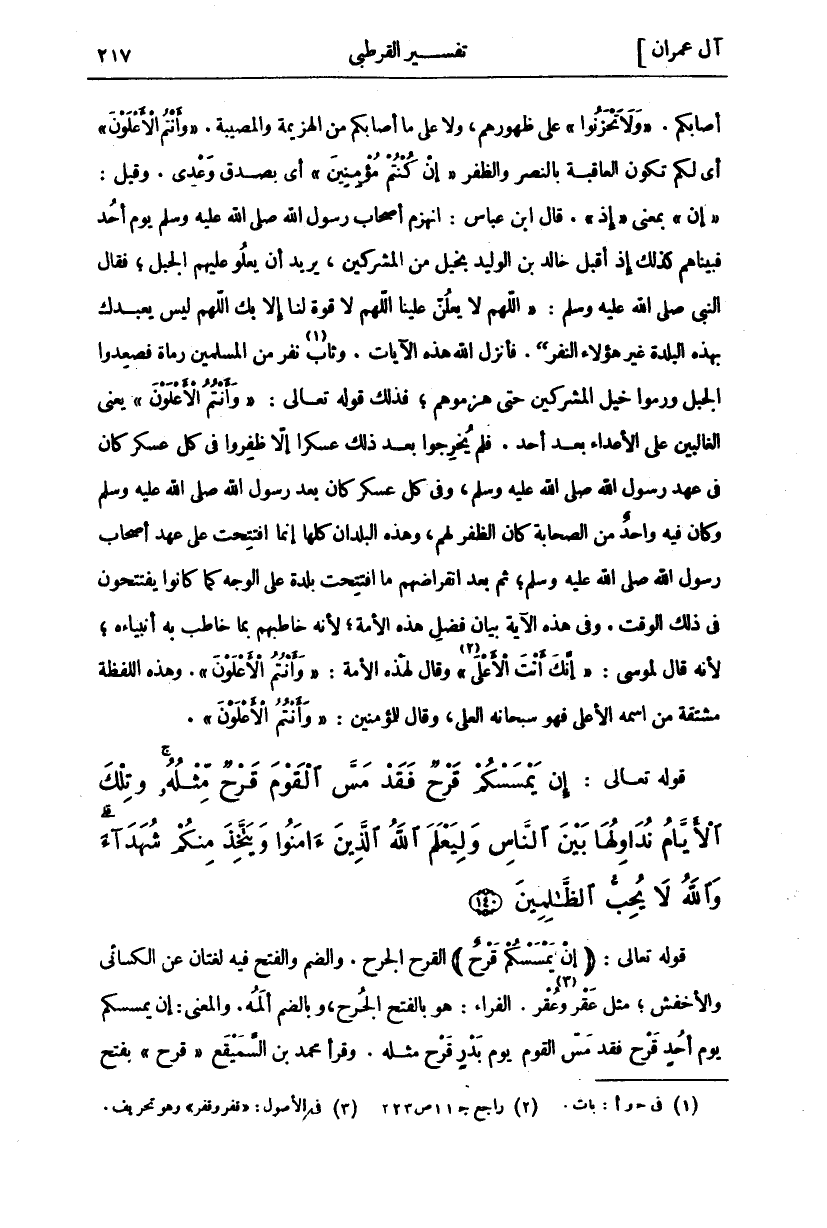 آل عمران ] تفسير القرطبى ٢١٧
أصابكم . «وَلَا تَحْزَنُوا» على ظهورهم، ولا على ما أصابكم من الهزيمة والمصيبة . «وَأَنْتُمُ الْأَعْلَوْنَ»
أى لكم تكون العاقبة بالنصر والظفر « إنْ كُنْتُمْ مُؤْمِنِينَ » أى بصدق وَعْدِى . وقيل :
« إن » بمعنى « إذ » . قال ابن عباس : انهزم أصحاب رسول الله صلى الله عليه وسلم يوم أُحُد
فبيناهم كذلك إذ أقبل خالد بن الوليد بخيل من المشركين ، يريد أن يعلُو عليهم الجبل ؛ فقال
النبى صلى الله عليه وسلم : « اللّهم لا يعلُنّ علينا اللّهم لا قوة لنا إلا بك اللّهم ليس يعبدك
بهذه البلدة غير هؤلاء النفر“ . فأنزل الله هذه الآيات . وثاب(١) نفر من المسلمين رماة فصعِدوا
الجبل ورموا خيل المشركين حتى هزموهم ؛ فذلك قوله تعالى : « وَأَنْتُمُ الْأَعْلَوْنَ » يعنى
الغالبين على الأعداء بعد أحد . فلم يُخرِجوا بعد ذلك عسكرا إلّا ظفِروا فى كل عسكر كان
فى عهد رسول الله صلى الله عليه وسلم، وفى كل عسكر كان بعد رسول الله صلى الله عليه وسلم
وكان فيه واحدٌ من الصحابة كان الظفر لهم، وهذه البلدان كلها إنما افتتِحت على عهد أصحاب
رسول الله صلى الله عليه وسلم؛ ثم بعد انقراضهم ما افتتِحت بلدة على الوجه كما كانوا يفتتحون
فى ذلك الوقت . وفى هذه الآية بيان فضلِ هذه الأمة؛ لأنه خاطبهم بما خاطب به أنبياءه ؛
لأنه قال لموسى : « إنَّكَ أَنْتَ الْأَعْلَى(٢) » وقال لهذه الأمة : « وَأَنْتُمُ الْأَعْلَوْنَ » . وهذه اللفظة
مشتقة من اسمه الأعلى فهو سبحانه العلى، وقال للؤمنين : « وَأَنْتُمُ الْأَعْلَوْنَ » .
قوله تعالى : إِن يَمْسَسْكُمْ قَرْحٌ فَقَدْ مَسَّ ٱلْقَوْمَ قَرْحٌ مِّثْلُهُۥ ۚ وَتِلْكَ
ٱلْأَيَّامُ نُدَاوِلُهَا بَيْنَ ٱلنَّاسِ وَلِيَعْلَمَ ٱللَّهُ ٱلَّذِينَ ءَامَنُوا وَيَتَّخِذَ مِنكُمْ شُهَدَآءَ ۗ
وَٱللَّهُ لَا يُحِبُّ ٱلظَّٰلِمِينَ ﴿١٤٠﴾
قوله تعالى : ﴿ إنْ يَمْسَسْكُمْ قَرْحٌ ﴾ القرح الجرح . والضم والفتح فيه لغتان عن الكسائى
والأخفش ؛ مثل عَقْر وعُقْر(٣) . الفراء : هو بالفتح الجُرح، وبالضم ألمَهُ. والمعنى : إن يمسسكم
يوم أُحُدٍ قَرْح فقد مَسّ القوم يوم بَدْرٍ قَرْح مثله . وقرأ محمد بن السَّمَيْقَع « قرح » بفتح
(١) فى حـ و أ : بات . (٢) راجع جـ ١١ ص ٢٢٣ (٣) فى الأصول : «فقر وفقر» وهو تحريف .